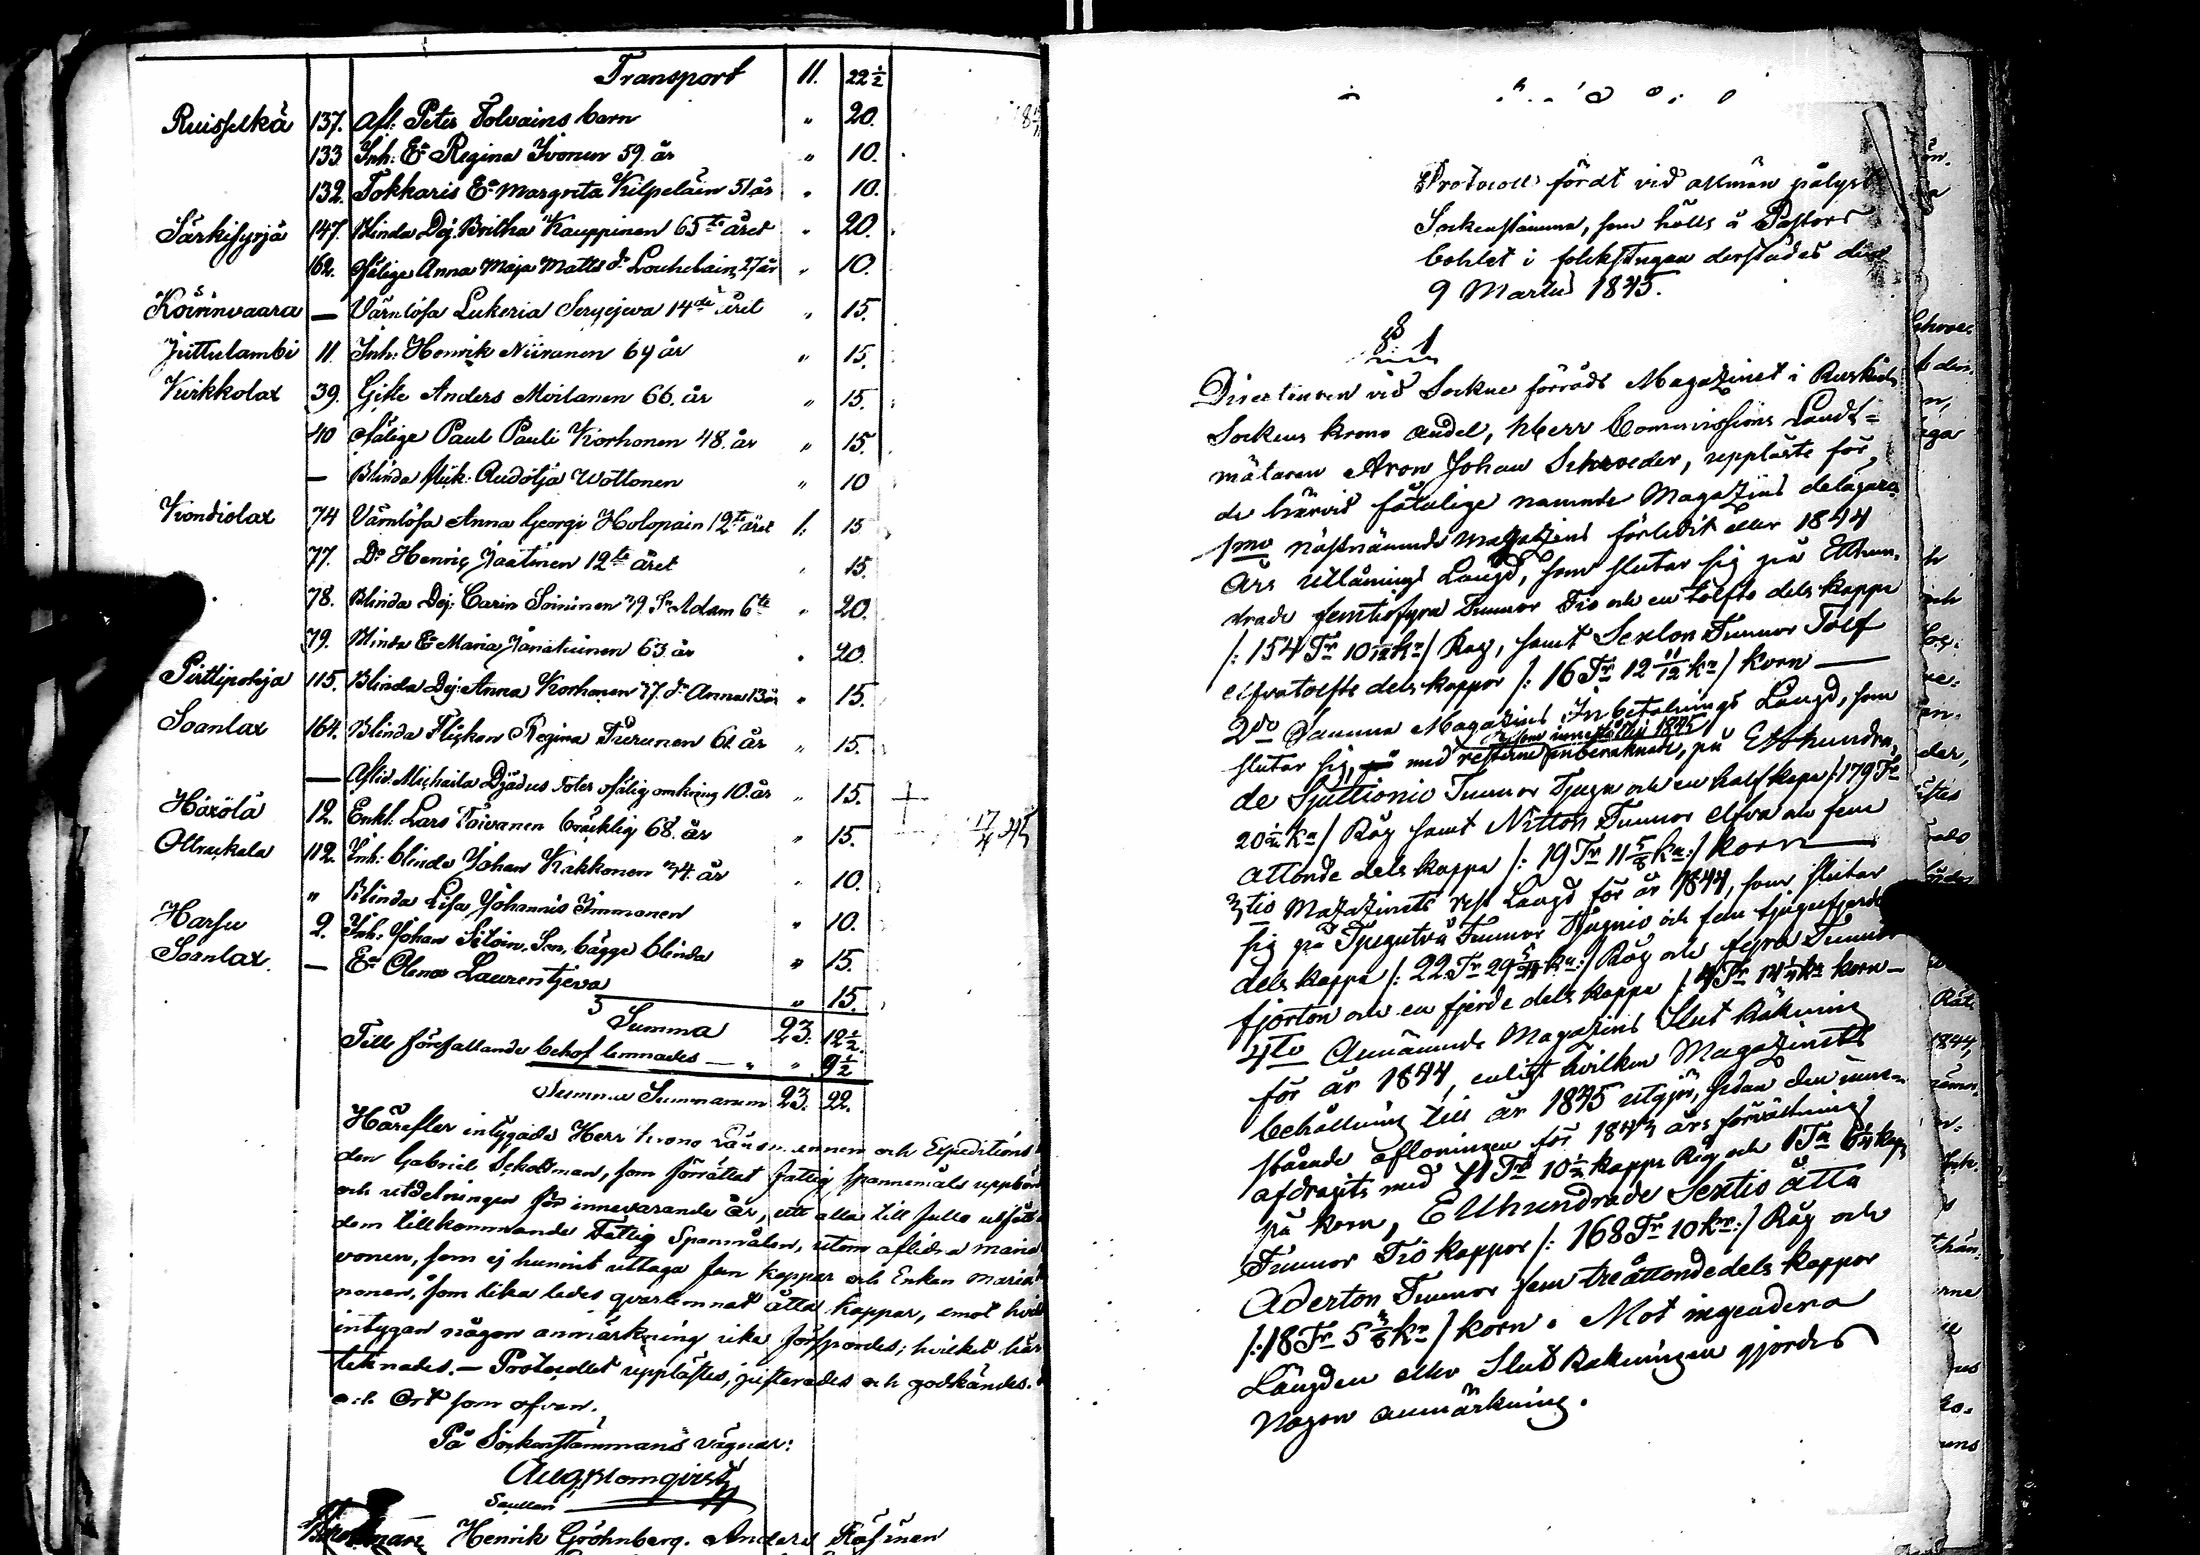 Transport 11. 22 1/2
Ruisselkä 137. Afl: Peter Tolvains barn " 20.
133 Inh: Ea Regina Ivonen 59 år " 10.
132. Tokkaris Ea Margreta Kilpeläin 51 år " 10.
Särkisyrjä 147. Blinda Dej. Britha Kauppinen 65te året " 20.
162. ofälige Anna Maja Matts dr Louhelain, 27 år " 10.
Koirinvaara — Värnlösa Lukeria Sergejeva 14de året " 15.
Juttulambi 11 Inh: Henrik Niiranen 69 år " 15.
Kirkkolax 39. Gifte Anders Moilanen 66. år " 15.
40 ofälige Paul Pauli Korhonen 48. år " 15.
— Blinda flick: Audotja Wottonen " 10
Kondiolax 74 Värnlösa Anna Georgi Holopain 12te året 1: 15
77. Do Henric Jaatinen 12te året " 15.
78. Blinda Dej: Carin Soininen 39 Sn Adam 6te " 20.
79. Blinda Ea Maria Janatuinen 63 år " 20.
Pirttipohja 115. Blinda Dej: Anna Korhonen 37. dr Anna 13 år " 15.
Soanlax 164. Blinda Flickan Regina Turunen 61 år " 15.
— Aflid. Michaila Djadus Soler ofälig omkring 10. år " 15.
Härölä 12. Enkl. Lars Toivanen bräcklig 68. år " 15.
Ollrackala 112. Inh: blinde Johan Kakkonen 34. år " 10.
" Blinda Lisa Johannis Immonen " 10.
Harsu 2. Inh: Johan Siloin. Son, bägge blinda " 15.
Soanlax. — Ea Olena Laurentjeva " 15.
Summa 23: 12 1/2.
Till förefallande behof lemnades — " " 9 1/2
Summa Summarum 23. 22.
Härefter intygade Herr Krono Länsmannen och Expeditions
den Gabriel Sckoltman, som förrättat fattig spannemåls uppbörd
och utdelningen för innevarande år, att alla till fullo utfått
dem tillkommande Fattig Spanmålen, utom aflidna Maria
vonen, som ej hunnit uttaga fem kappar och Enkan Maria
nonen, som lika ledes qvarlemnat åtta kappar, emot hvilket
intygan någon anmärkning icke försspordes; hvilket här
teknades. — Protocollet upplästes, justerades och godkändes.
och Ort som ofvan.
På Sockenstämmans vägnar:
Aug. Blomqvist
Henrik Gröhnberg. Anders Räsinen
Protocoll fördt vid allmän pålyst
Sockenstämma, som hölls å Pastors
bohlet i folckstugan derstädes den
9 Martii 1845.
§ 1
Directeuren vid Sockne förråds Magazinet i Ruskiala
Sockens krono andel, Herr Commissions Landt=
mätaren Aron Johan Schroeder, uppläste för
de härvid fåtalige namnde Magazins delägare
1mo näst nämnde Magazins förledit eller 1844
Års Utlånings Längd, som slutar sig på Etthun-
drade femtiofyra Tunnor Tio och en tolfte dels kappe
/: 154 Tr 10 1/12 kr / Råg, samt Sexton Tunnor Tolf
elfvatolfte dels kappor /: 16 Tr 12 11/12 kr / korn —
2do Samma Magazins Inbetalnings Längd, som
slutar sig, med resterne inberäknade, på Etthundra-
de Sjuttionio Tunnor Tjugu och en half kape /: 179 Tr
20 1/2 kr / Råg samt Nitton Tunnor elfva och fem
åttonde dels kappa /: 19 Tr 11 5/8 kr:/ korn —
3tio Magazinets rest Längd för år 1844, som slutar
sig på Tjugutvå Tunnor Tjugunio och fem tjugufjerde
dels kappa /: 22 Tr 29 5/24 kr:/ Råg och fyra Tunnor
fjorton och en fjerde dels kappa /: 4 Tr 14 1/4 kr korn —
4to Omnämnde Magazins Slut Räkning
för år 1844, enligt hvilken Magazinets
behållning till år 1845 utgjör, sedan den inne-
stående aflöningen för 1843 års förvaltning
afdragits med 11 Tr 10 1/2 kappe Råg och 1 Tn 6 1/4 kap
på korn, Etthundrade Sextio åtta
Tunnor Tio kappor /: 168 Tr 10 kr:/ Råg och
Aderton Tunnor fem treåttondedels kappor
/: 18 Tr 5 3/8 kr / korn. Mot ingendera
Längden eller Slut Räkningen gjordes
Någon anmärkning.